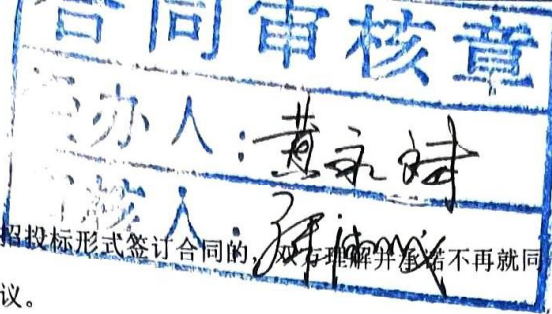 合同审核章
经办人：黄永斌
审核人：
招投标形式签订合同的，双方理解并承诺不再就同
议。